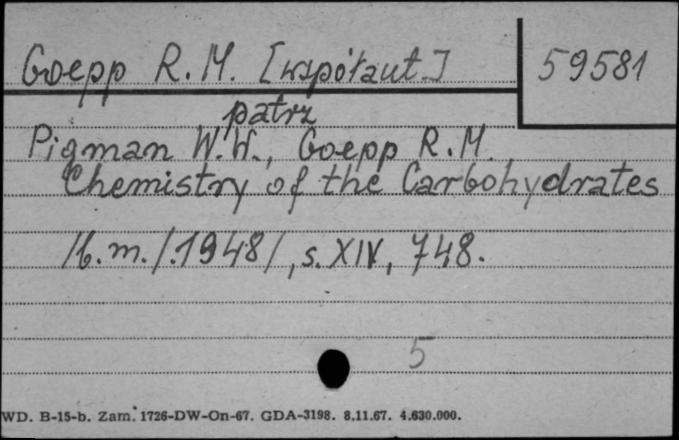 Goepp R.M. [współaut.] 59581
patrz
Pigman W.W., Goepp R.M.
Chemistry of the Carbohydrates
/b.m./.1948/, s. XIV, 748.
5
WD. B-15-b. Zam. 1726-DW-On-67. GDA-3198. 8.11.67. 4.630.000.